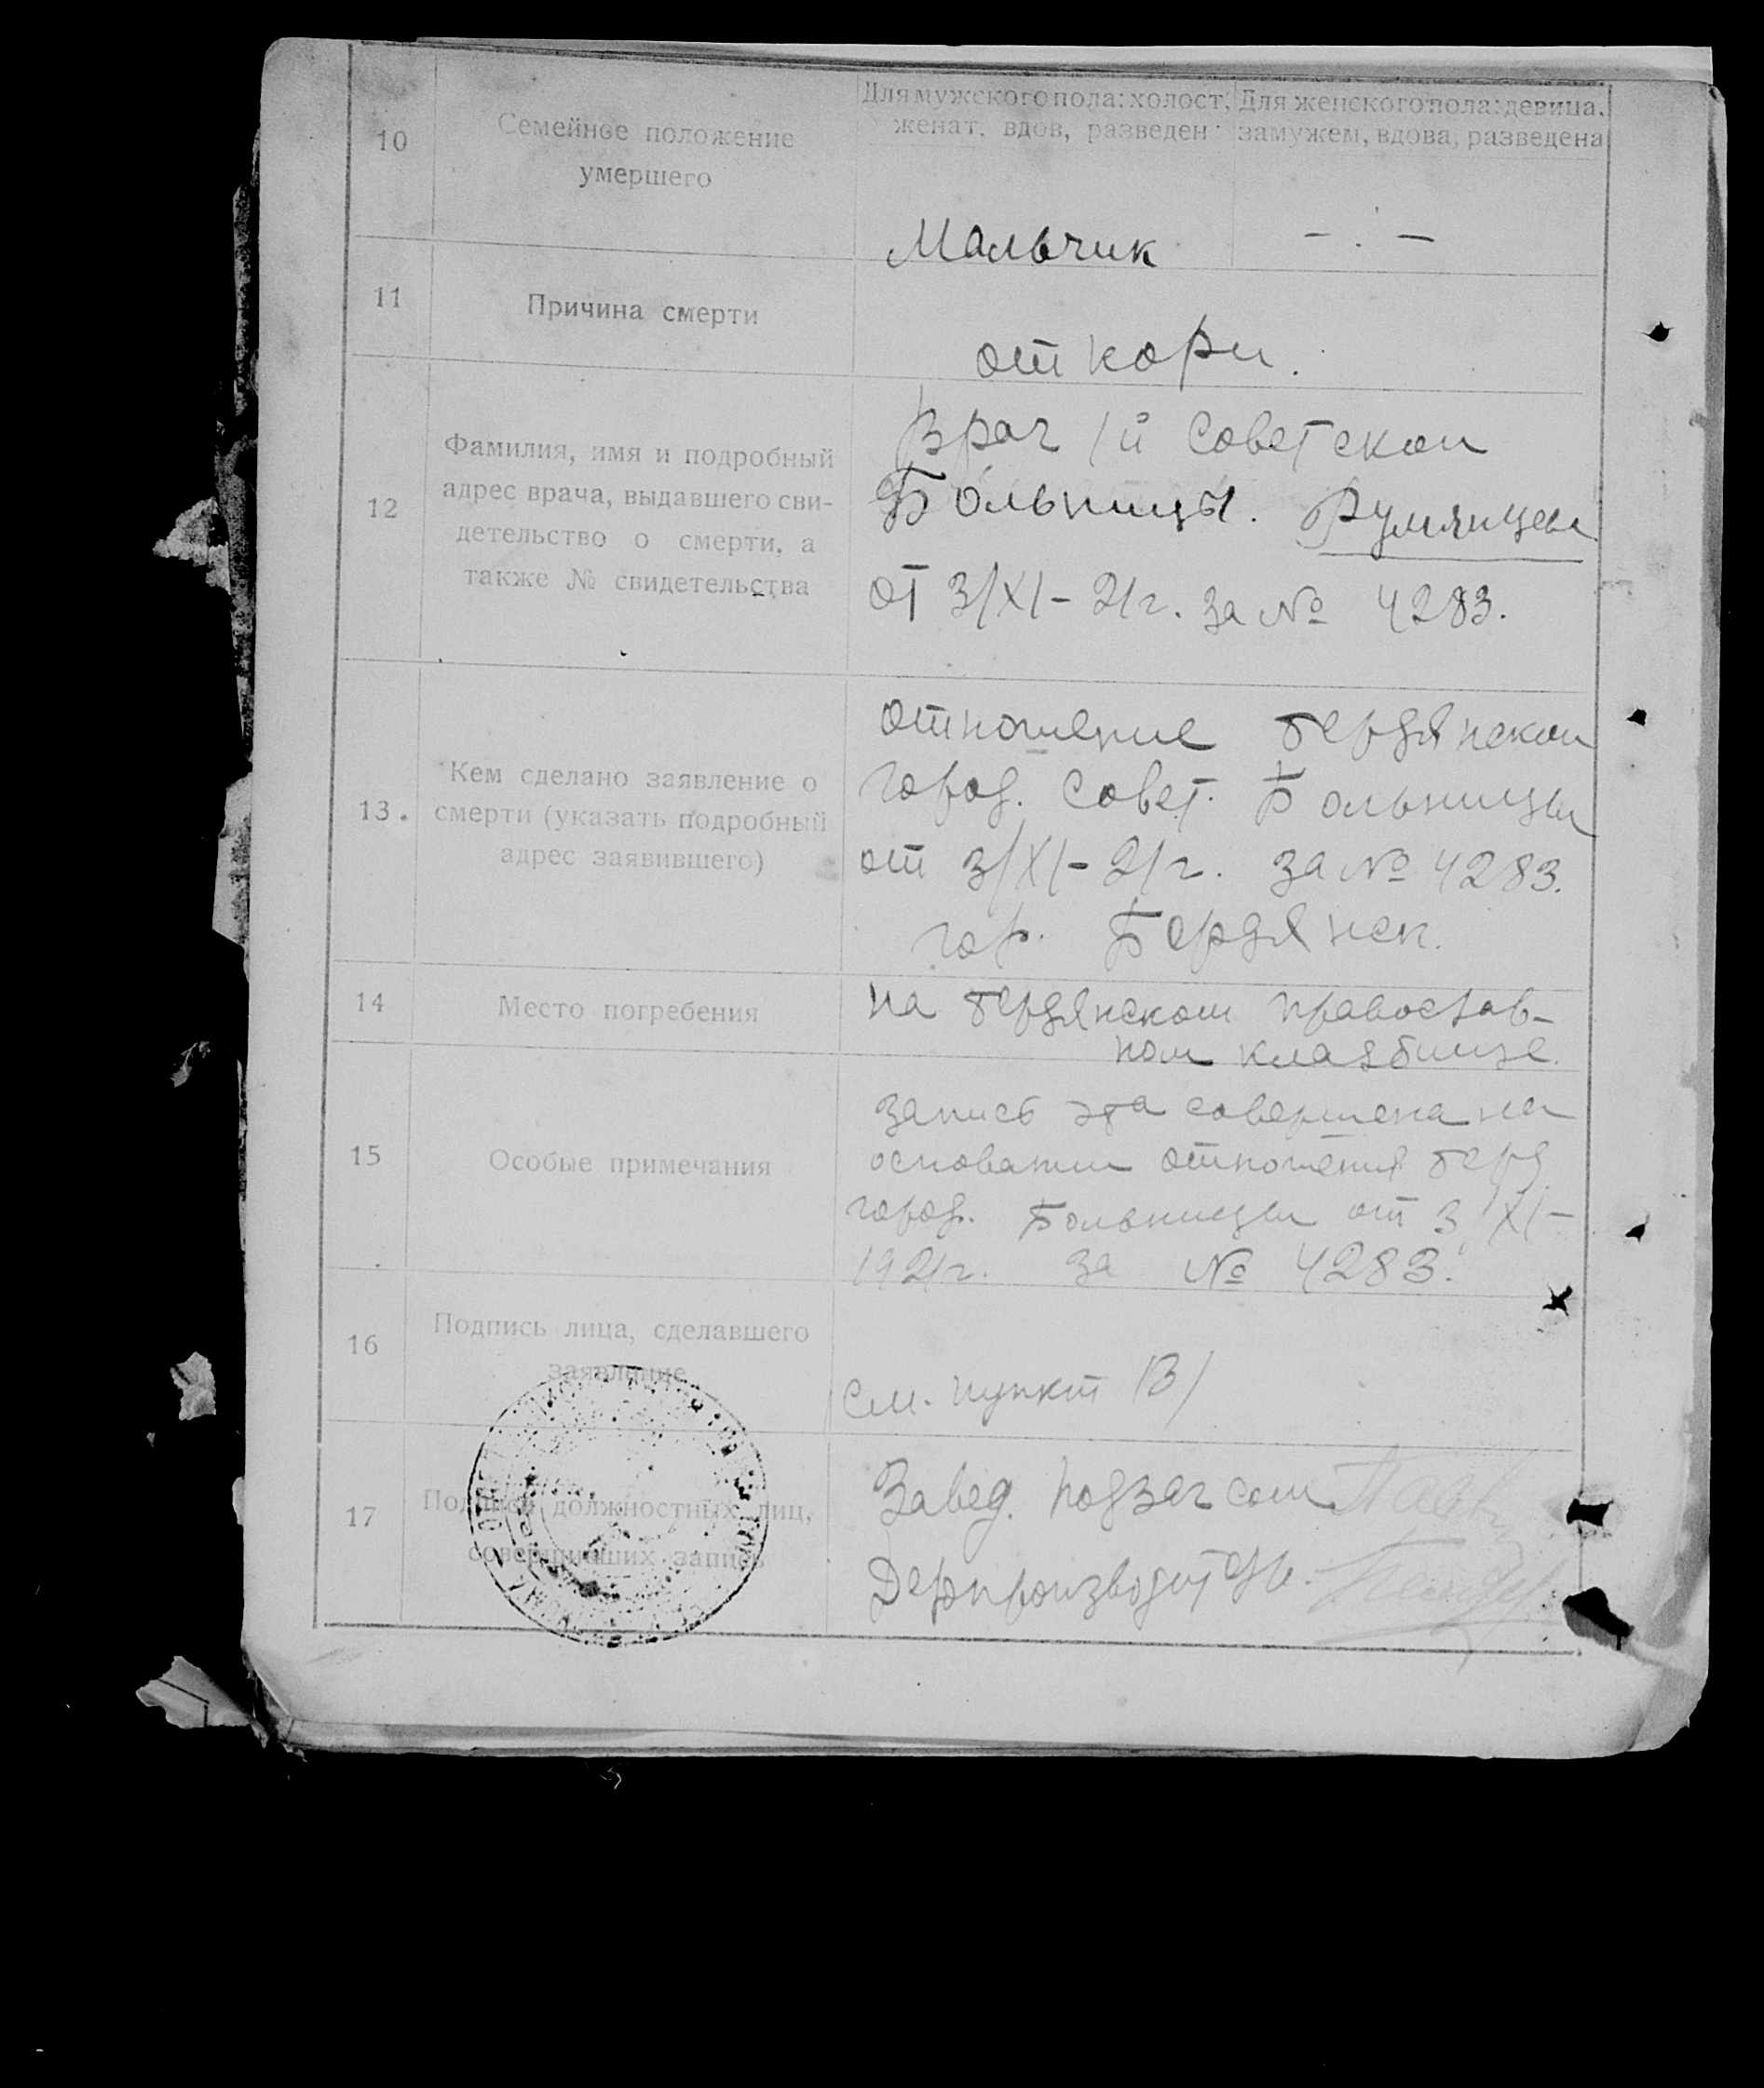 10
Семейное положение
умершего
Для мужского пола: холост,
женат, вдов, разведен
Для женского пола: девица,
замужем, вдова, разведена
Мальчик
— . —
11
Причина смерти
от кори.
12
Фамилия, имя и подробный
адрес врача, выдавшего сви-
детельство о смерти, а
также № свидетельства
Врач 1й Советской
Больницы. Румянцев
от 3/XI-21г. за № 4283.
13.
Кем сделано заявление о
смерти (указать подробный
адрес заявившего)
отношение бердянской
город. Совет. Больницы
от 3/XI-21г. за № 4283.
гор. Бердянск.
14
Место погребения
на бердянском православ-
ном кладбище.
15
Особые примечания
запись эта совершена на
основании отношения берд.
город. Больницы от 3/XI-
1921г. за № 4283.
16
Подпись лица, сделавшего
заявление
См. пункт 13/
17
Подписи должностных лиц,
совершивших запись
Завед. подзагсом
Делопроизводитель